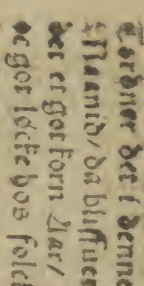 Tordner det i denne
Maanid/ da bliffuer
det et got Korn Aar/
oc got løcke hos folck